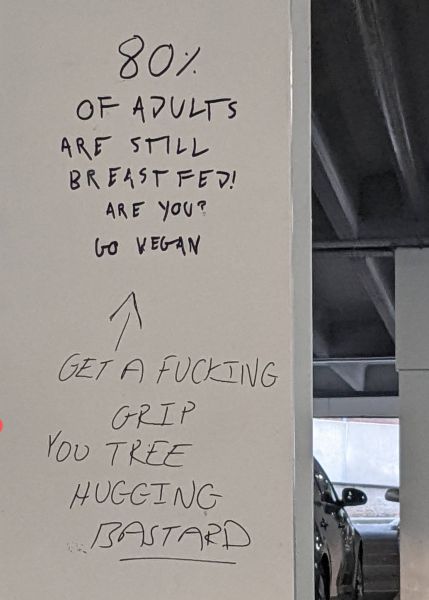 80%
OF ADULTS
ARE STILL
BREAST FED!
ARE YOU?
GO VEGAN
GET A FUCKING
GRIP
YOU TREE
HUGGING
BASTARD